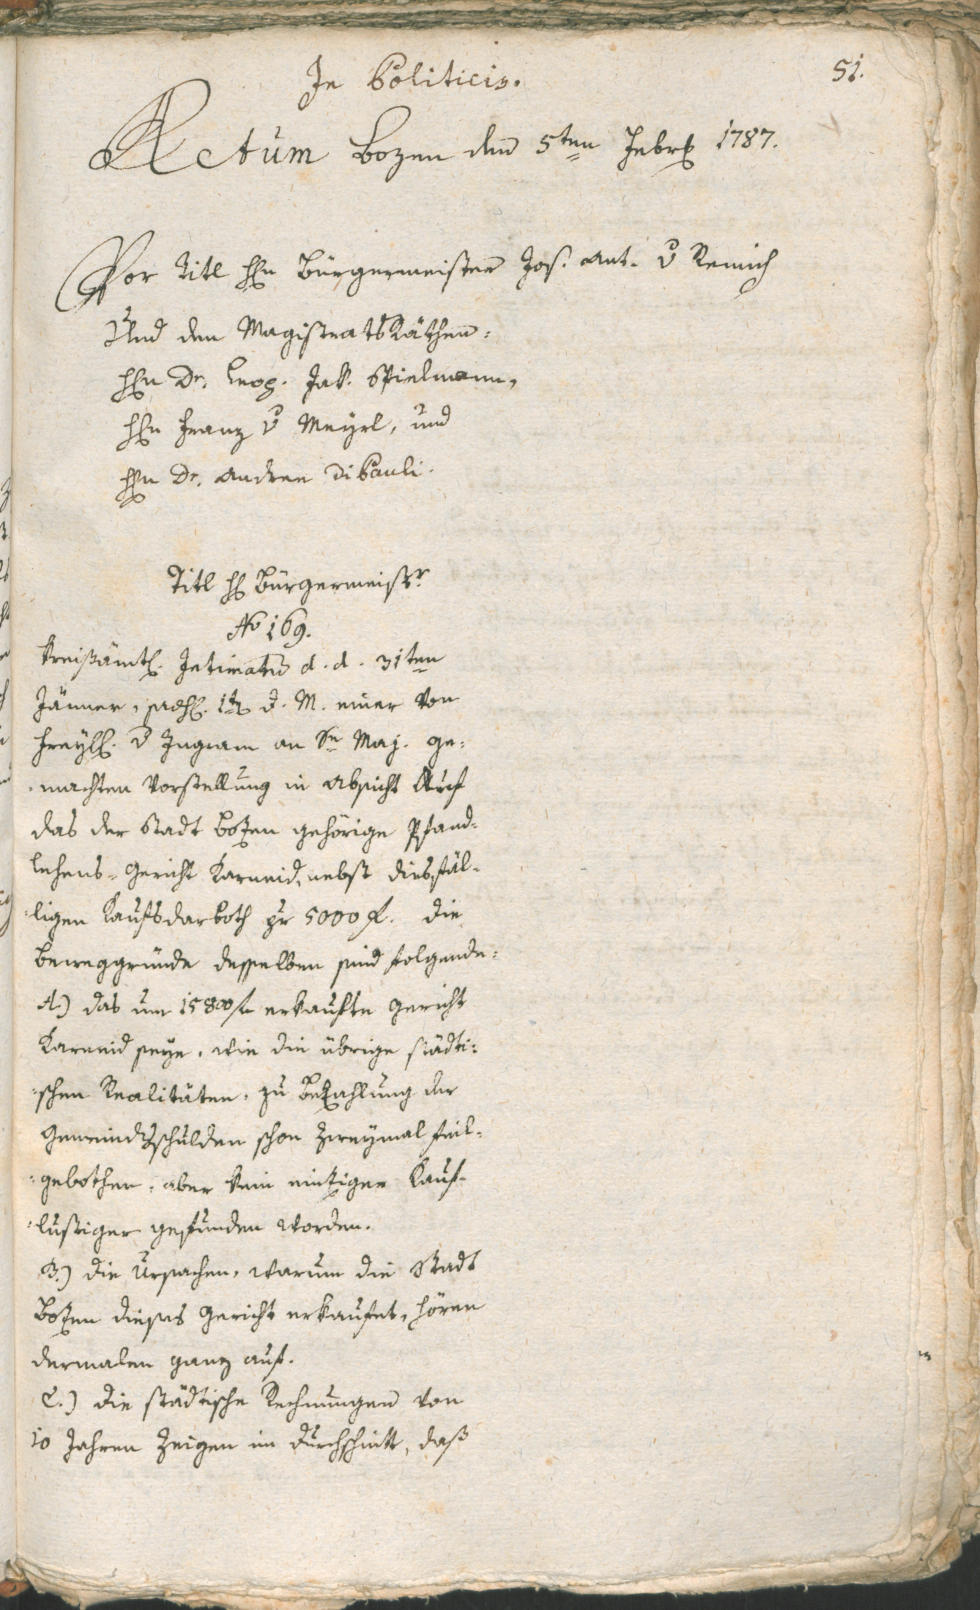 In Politicis.
51.
Actum Bozen den 5ten Febr. 1787.
Vor Titl Hrn Bürgermeister Jos. Ant. v Remich
Und den Magistrats Räthen:
Hrn Dr. Leop. Jak. Spielmann,
Hrn Franz v Meyrl, und
Hrn Dr. Andree Di Pauli.
Titl H Bürgermeistr
No 169.
Kreißämtl. Intimatum d. d. 31ten
Jänner, d. M. einer Von
Freyh. v Ingram an Se Maj. ge-
machten Vorstellung in Absicht Auf
das der Stadt Bozen gehörige Pfand-
lehens-Gericht Karneid, nebst diesfäl-
ligen Kaufsdarboth zu 5000 f. Die
Beweggründe desselben sind folgende:
A.) das um 15800 f erkaufte Gericht
Karneid seye, wie die übrige städti-
schen Realitäten, zu Bezahlung der
Gemeindsschulden schon Zweymal feil-
gebothen, aber kein einziger Kauf-
lustiger gefunden worden.
B.) die Ursachen, warum die Stadt
Bozen dieses Gericht erkaufet, hören
dermalen ganz auf.
C.) die städtische Rechnungen von
10 Jahren Zeigen im Durchschnitt, daß